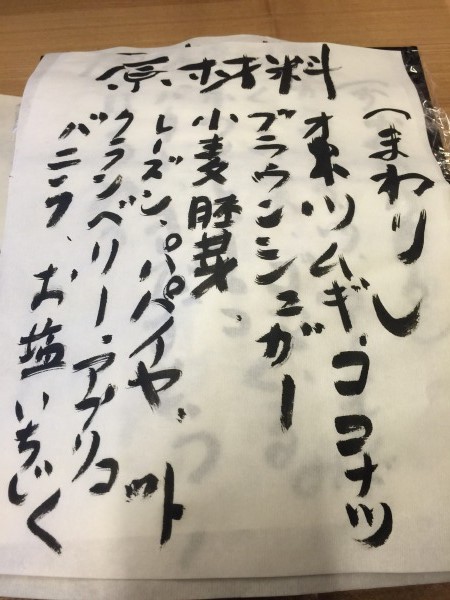 原材料
へまわりし
オーツムギ、ココナツ
ブラウンシュガー
小麦胚芽、
レーズン、パパイヤ、
クランベリー、アプリコット
バニラ、お塩 いちじく